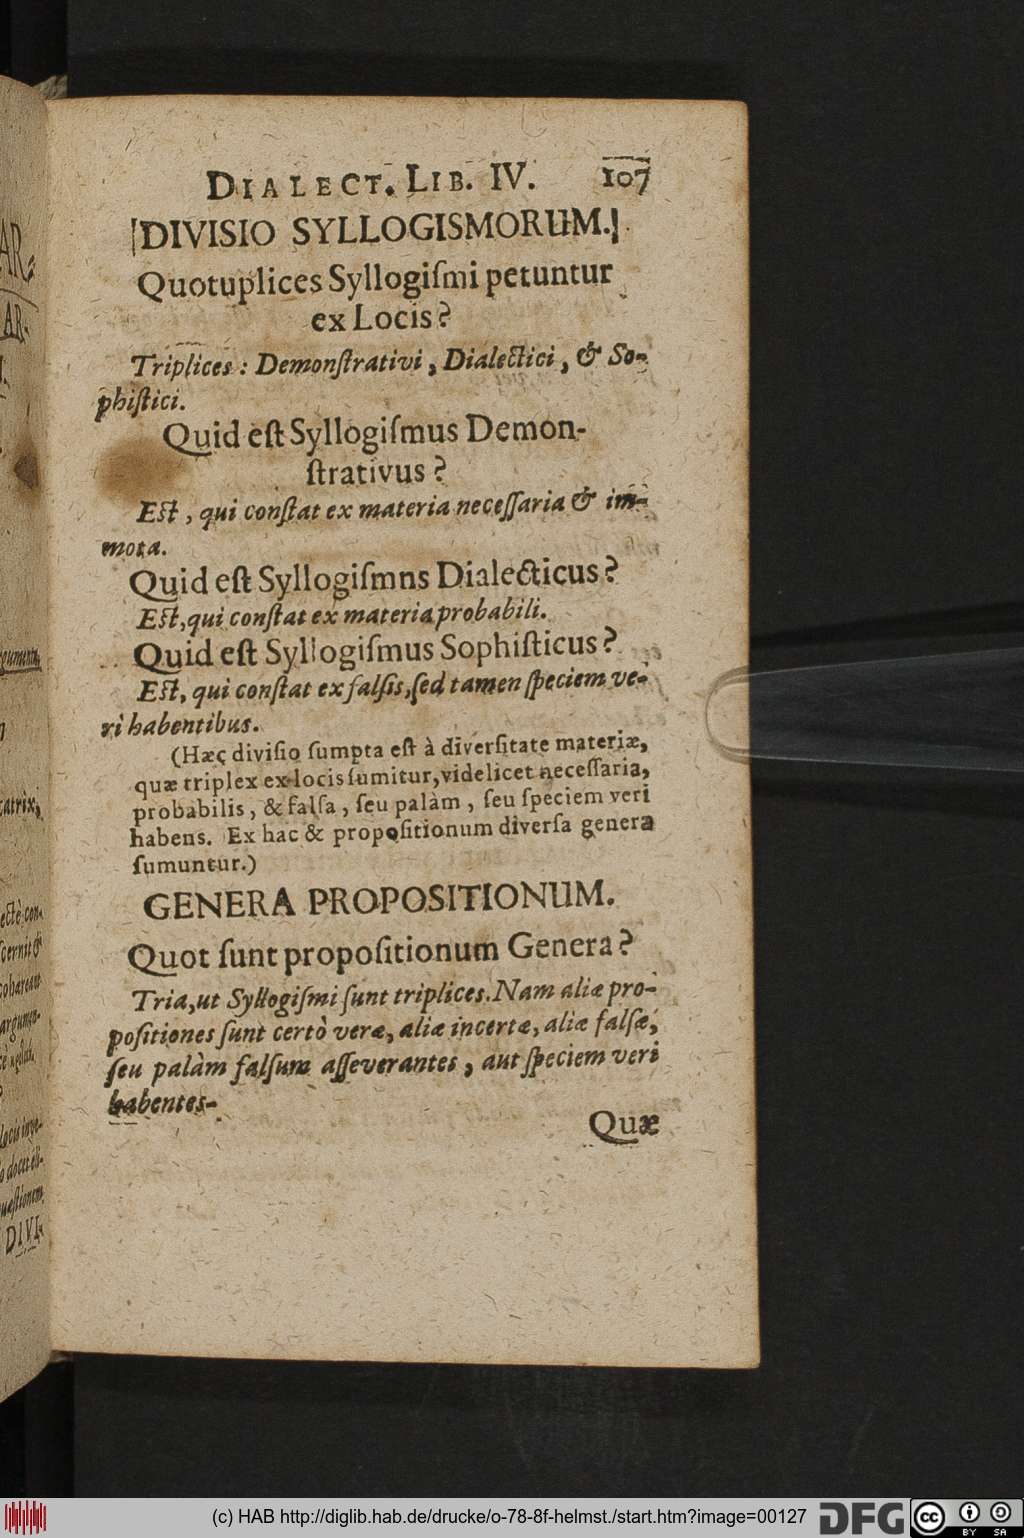 DIALECT. LIB. IV. 107
DIVISIO SYLLOGISMORUM.
Quotuplices Syllogiſmi petuntur
ex Locis?
Triplices: Demonſtrativi, Dialectici, & So-
phiſtici.
Quid eſt Syllogiſmus Demon-
ſtrativus?
Eſt, qui conſtat ex materia neceſſaria & im-
mota.
Quid eſt Syllogiſmns Dialecticus?
Eſt, qui conſtat ex materia probabili.
Quid eſt Syllogiſmus Sophiſticus?
Eſt, qui conſtat ex falſis, ſed tamen ſpeciem ve-
ri habentibus.
(Hæc diviſio ſumpta eſt à diverſitate materiæ,
quæ triplex ex locis ſumitur, videlicet neceſſaria,
probabilis, & falſa, ſeu palàm, ſeu ſpeciem veri
habens. Ex hac & propoſitionum diverſa genera
ſumuntur.)
GENERA PROPOSITIONUM.
Quot ſunt propoſitionum Genera?
Tria, ut Syllogiſmi ſunt triplices. Nam aliæ pro-
poſitiones ſunt certò veræ, aliæ incertæ, aliæ falſæ,
ſeu palàm falſum aſſeverantes, aut ſpeciem veri
habentes.
Quæ
(c) HAB http://diglib.hab.de/drucke/o-78-8f-helmst./start.htm?image=00127 DFG cc BY SA